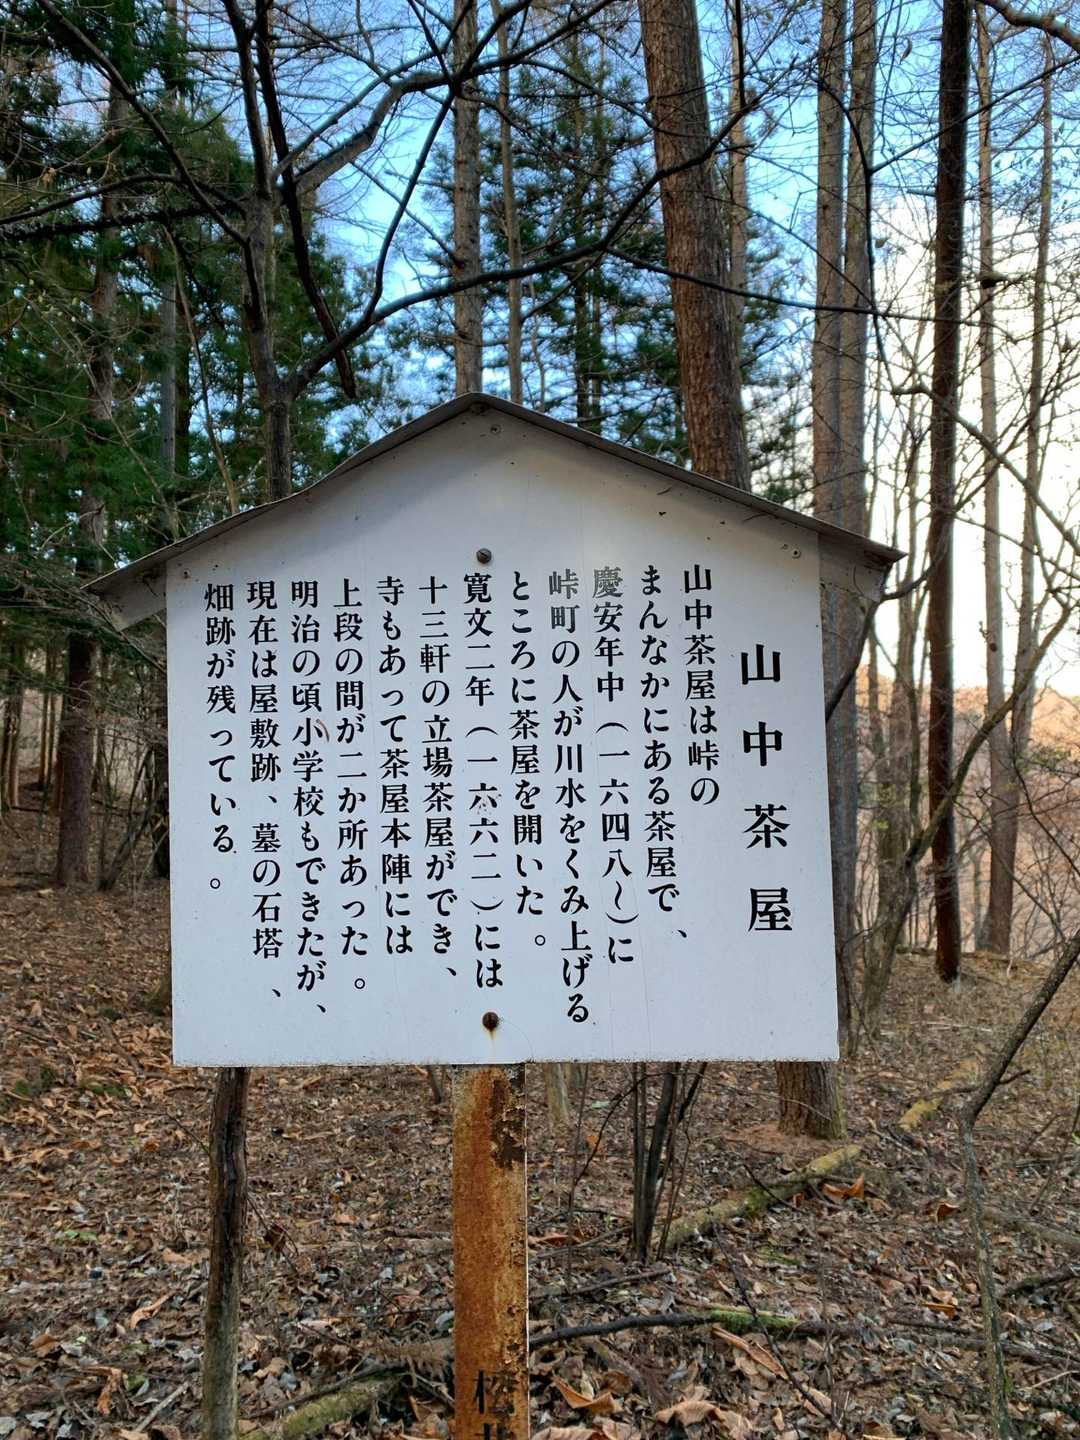 山中茶屋
山中茶屋は峠の
まんなかにある茶屋で、
慶安年中(一六四八〜)に
峠町の人が川水をくみ上げる
ところに茶屋を開いた。
寛文二年(一六六二)には
十三軒の立場茶屋ができ、
寺もあって茶屋本陣には
上段の間が二か所あった。
明治の頃小学校もできたが、
現在は屋敷跡、墓の石塔、
畑跡が残っている。
松井